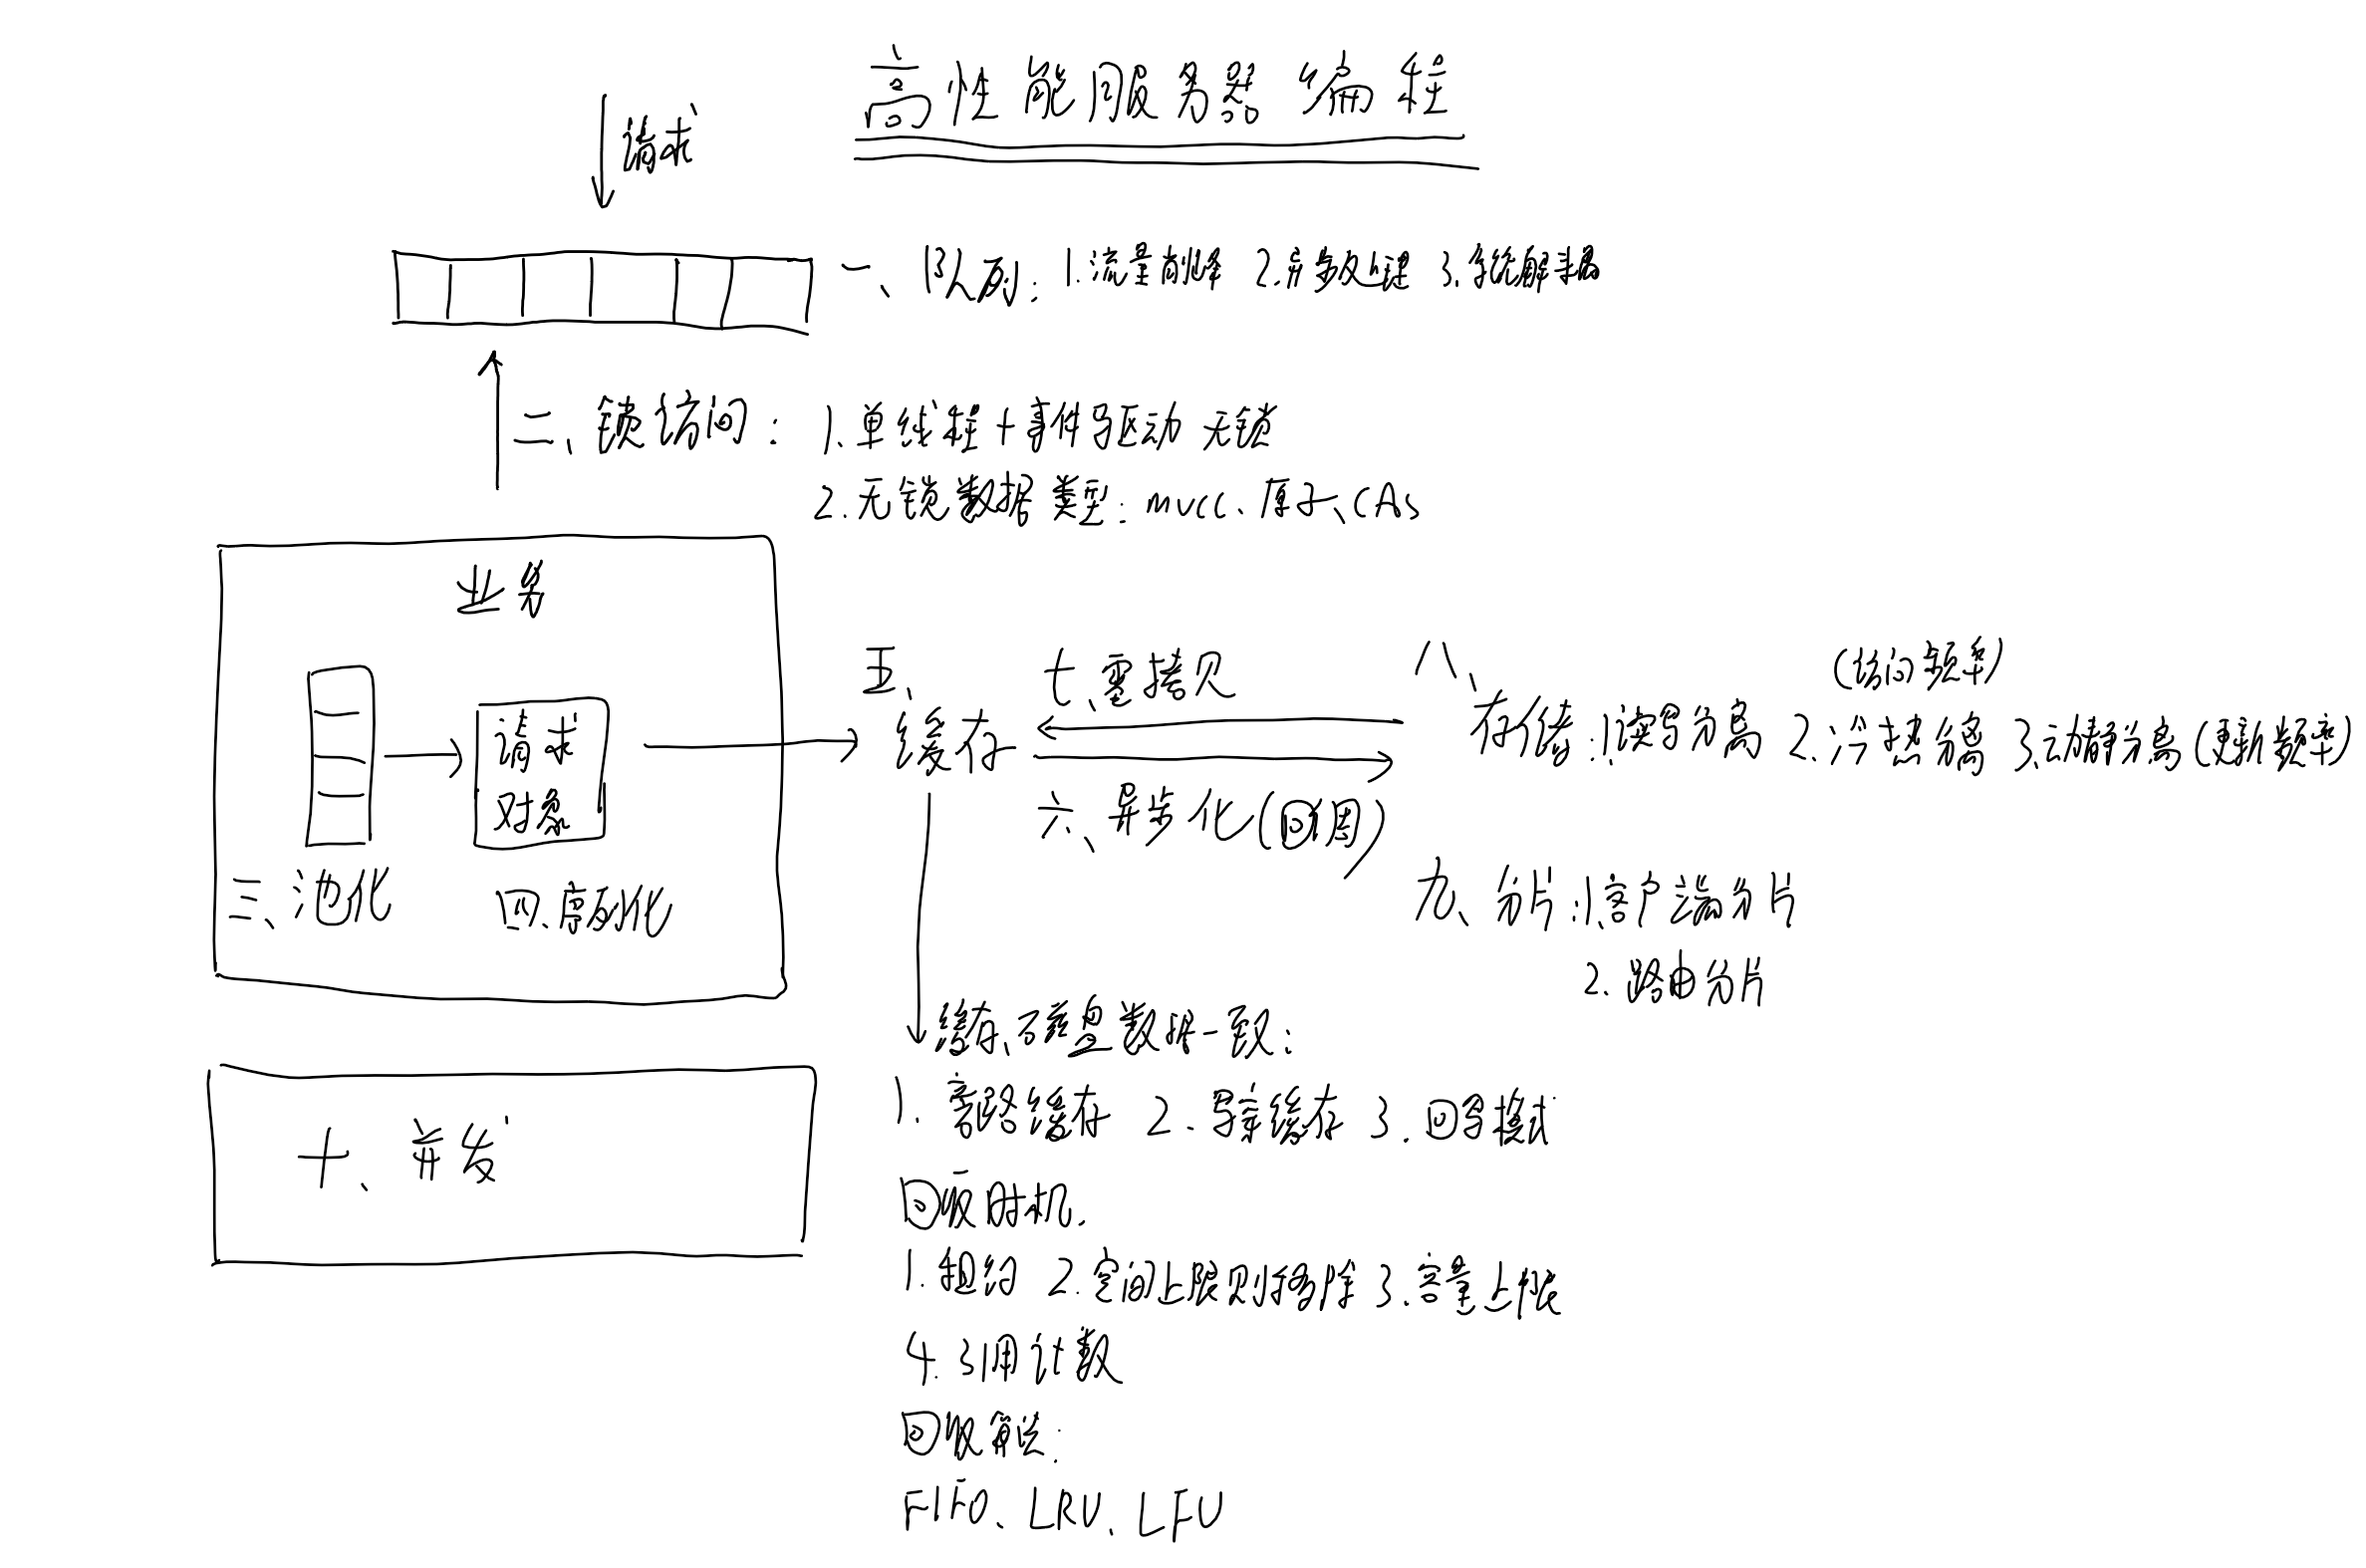 高性能服务器编程
请求
一、队列：1.流量削峰 2.异步处理 3.系统解耦
二、锁访问：1.单线程+事件驱动 无锁
2.无锁数据类型：mvcc、原子、CAS
业务
请求
对象
三、池化
四、序列化
五、
缓存
七、零拷贝
六、异步化(回调)
八、
(访问频率)
存储：1.读写分离 2.冷热分离 3.动静分离(更新频率)
九、分片：1.客户端分片
2.路由分片
缓存、磁盘数据一致：
1.旁路缓存 2.写穿缓存 3.回写模式
十、并发
回收时机.
1.租约 2.空间上限则移除 3.容量上限
4.引用计数
回收算法：
FIFO、LRU、LFU